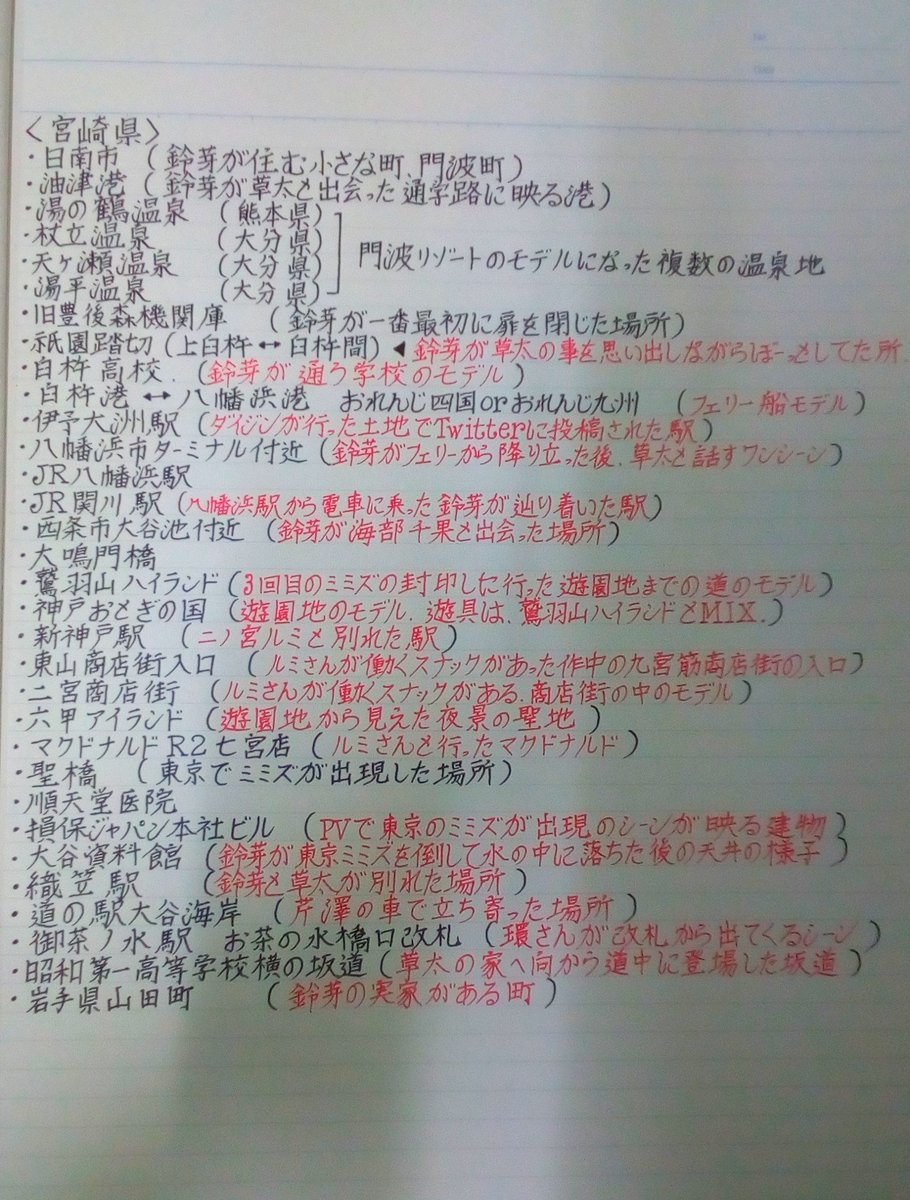 〈宮崎県〉
・日南市 (鈴芽が住む小さな町、門波町)
・油津港 (鈴芽が草太と出会った通学路に映る港)
・湯の鶴温泉 (熊本県)
・杖立温泉 (大分県)
・天ヶ瀬温泉 (大分県) 門波リゾートのモデルになった複数の温泉地
・湯平温泉 (大分県)
・旧豊後森機関庫 (鈴芽が一番最初に扉を閉じた場所)
・祇園踏切(上臼杵↔臼杵間) ◀鈴芽が草太の事を思い出しながらぼーっとしてた所
・臼杵高校. (鈴芽が通う学校のモデル)
・臼杵港 ↔ 八幡浜港 おれんじ四国orおれんじ九州 (フェリー船モデル)
・伊予大洲駅(ダイジンが行った土地でTwitterに投稿された駅)
・八幡浜市ターミナル付近 (鈴芽がフェリーから降り立った後、草太と話すワンシーン)
・JR八幡浜駅
・JR関川駅(八幡浜駅から電車に乗った鈴芽が辿り着いた駅)
・西条市大谷池付近 (鈴芽が海部千果と出会った場所)
・大鳴門橋
・鷲羽山ハイランド(3回目のミミズの封印しに行った遊園地までの道のモデル)
・神戸おとぎの国 (遊園地のモデル.遊具は、鷲羽山ハイランドとMIX.)
・新神戸駅 (二ノ宮ルミと別れた駅)
・東山商店街入口 (ルミさんが働くスナックがあった作中の九宮筋商店街の入口)
・二宮商店街 (ルミさんが働くスナックがある、商店街の中のモデル)
・六甲アイランド (遊園地から見えた夜景の聖地)
・マクドナルドR2七宮店 (ルミさんと行ったマクドナルド)
・聖橋 (東京でミミズが出現した場所)
・順天堂医院
・損保ジャパン本社ビル (PVで東京のミミズが出現のシーンが映る建物)
・大谷資料館 (鈴芽が東京ミミズを倒して水の中に落ちた後の天井の様子)
・織笠駅 (鈴芽と草太が別れた場所)
・道の駅大谷海岸 (芹澤の車で立ち寄った場所)
・御茶ノ水駅 お茶の水橋口改札 (環さんが改札から出てくるシーン)
・昭和第一高等学校横の坂道(草太の家へ向から道中に登場した坂道)
・岩手県山田町 (鈴芽の実家がある町)